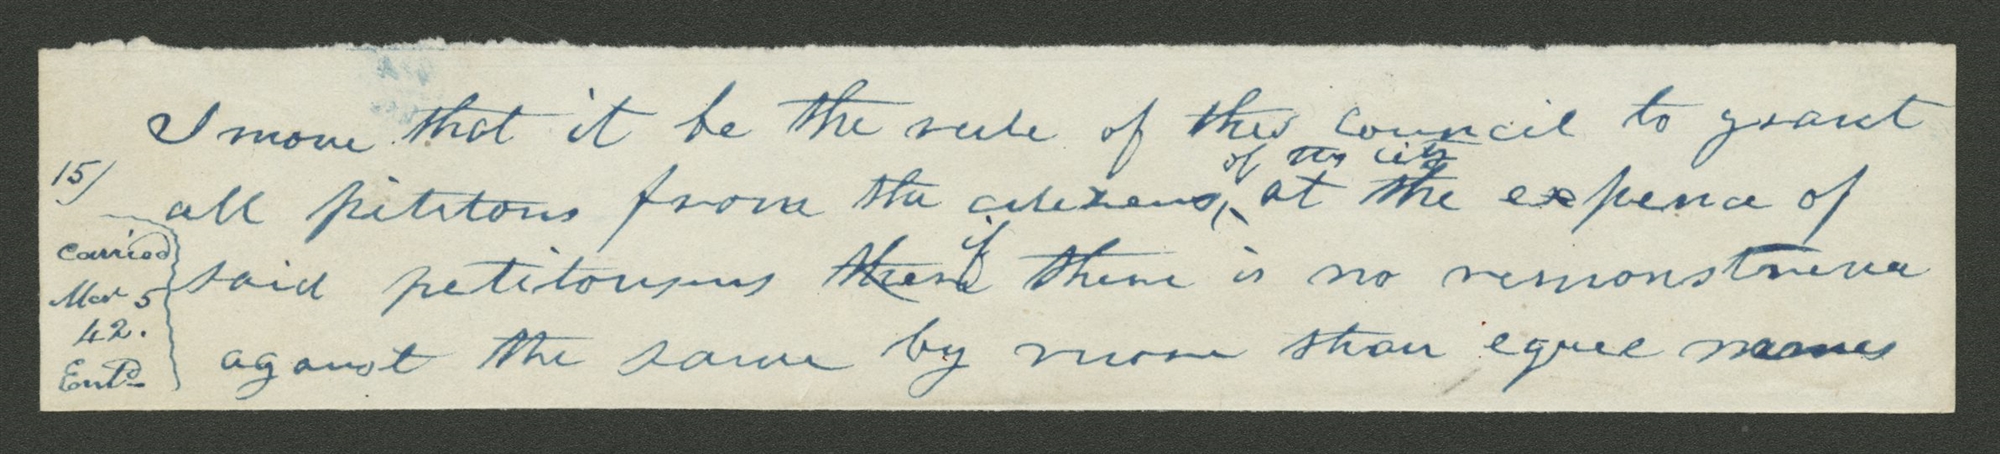 I move that it be the rule of this council to grant
of the city
all pititons from the citezens, at the expence of
if
said petitouners there there is no remonstrence
against the same by more than equel names
15/
Carried
Mar 5
42.
Entd